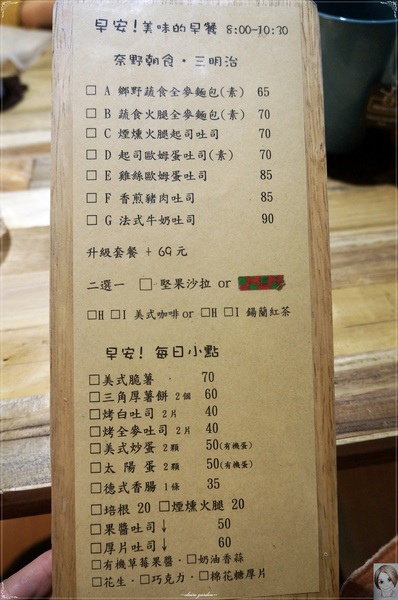 早安!美味的早餐 8:00-10:30
奈野朝食·三明治
□ A 鄉野蔬食全麥麵包(素) 65
□ B 蔬食火腿全麥麵包(素) 70
□ C 煙燻火腿起司吐司 70
□ D 起司歐姆蛋吐司(素) 70
□ E 雞絲歐姆蛋吐司 85
□ F 香煎豬肉吐司 85
□ G 法式牛奶吐司 90
升級套餐 + 69 元
二選一 □ 堅果沙拉 or
□H □I 美式咖啡 or □H □I 錫蘭紅茶
早安! 每日小點
□美式脆薯 70
□三角厚薯餅 2個 60
□烤白吐司 2片 40
□烤全麥吐司 2片 40
□美式炒蛋 2顆 50(有機蛋)
□太陽蛋 2顆 50(有機蛋)
□德式香腸 1條 35
□培根 20 □煙燻火腿 20
□果醬吐司↓ 50
□厚片吐司↓ 60
□有機草莓果醬·□奶油香蒜
□花生·□巧克力·□棉花糖厚片